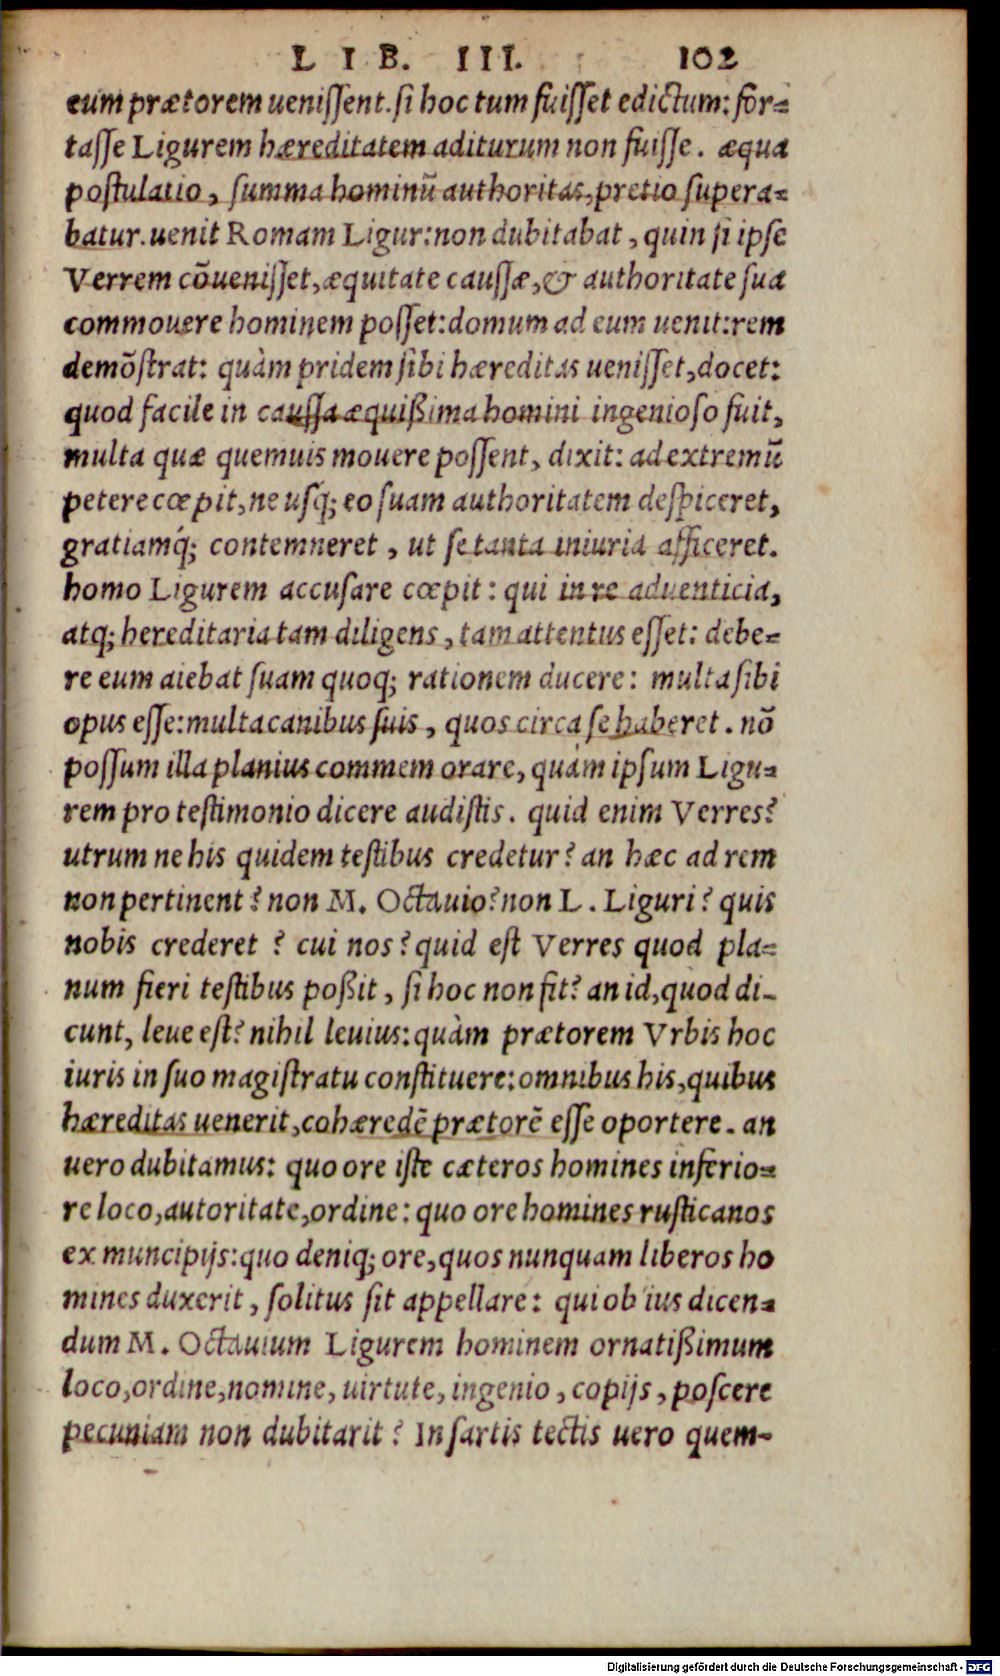 LIB. III. 102
eum prætorem ueniſſent. ſi hoc tum fuiſſet edictum: for-
taſſe Ligurem hæreditatem aditurum non fuiſſe. æqua
poſtulatio, ſumma hominū authoritas, pretio ſupera-
batur. uenit Romam Ligur: non dubitabat, quin ſi ipſe
Verrem cōueniſſet, æquitate cauſſæ, & authoritate ſua
commouere hominem poſſet: domum ad eum uenit: rem
demōſtrat: quàm pridem ſibi hæreditas ueniſſet, docet:
quod facile in cauſſa æquißima homini ingenioſo fuit,
multa quæ quemuis mouere poſſent, dixit: ad extremū
petere cœpit, ne uſq; eo ſuam authoritatem deſpiceret,
gratiamq́; contemneret, ut ſe tanta iniuria afficeret.
homo Ligurem accuſare cœpit: qui in re aduenticia,
atq; hereditaria tam diligens, tam attentus eſſet: debe-
re eum aiebat ſuam quoq; rationem ducere: multa ſibi
opus eſſe: multa canibus ſuis, quos circa ſe haberet. nō
poſſum illa planius commemorare, quàm ipſum Ligu-
rem pro teſtimonio dicere audiſtis. quid enim Verres?
utrum ne his quidem teſtibus credetur? an hæc ad rem
non pertinent? non M. Octauio? non L. Liguri? quis
nobis crederet? cui nos? quid eſt Verres quod pla-
num fieri teſtibus poßit, ſi hoc non fit? an id, quod di-
cunt, leue eſt? nihil leuius: quàm prætorem Vrbis hoc
iuris in ſuo magiſtratu conſtituere: omnibus his, quibus
hæreditas uenerit, cohæredē prætorē eſſe oportere. an
uero dubitamus: quo ore iſte cæteros homines inferio-
re loco, autoritate, ordine: quo ore homines ruſticanos
ex muncipijs: quo deniq; ore, quos nunquam liberos ho
mines duxerit, ſolitus ſit appellare: qui ob ius dicen-
dum M. Octauium Ligurem hominem ornatißimum
loco, ordine, nomine, uirtute, ingenio, copijs, poſcere
pecuniam non dubitarit? In ſartis tectis uero quem-
Digitalisierung gefördert durch die Deutsche Forschungsgemeinschaft - DFG